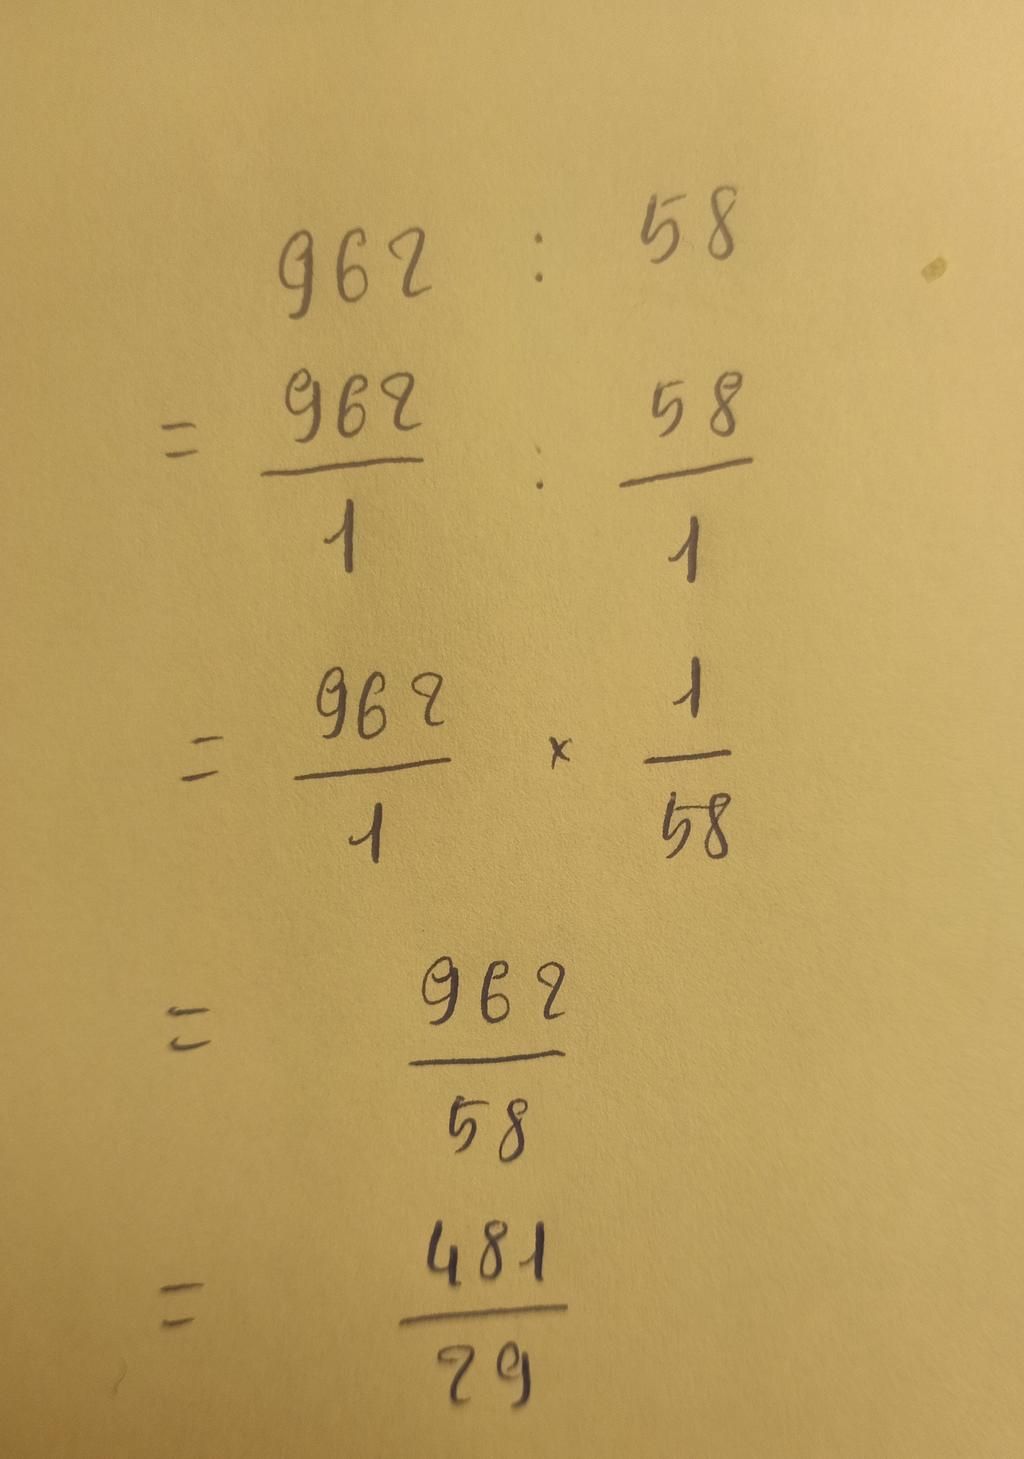 962 : 58
= 962/1 : 58/1
= 962/1 × 1/58
= 962/58
= 481/29